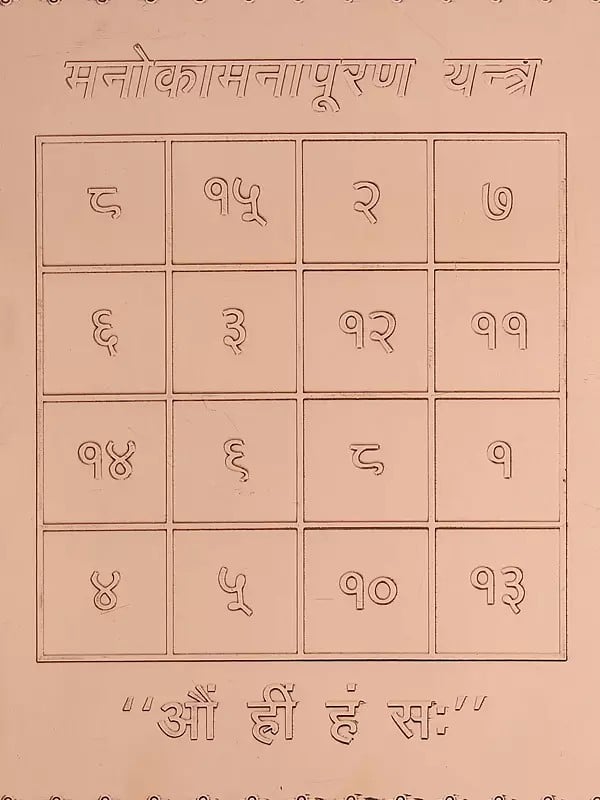 मनोकामनापूरण यन्त्रं
८ १५ २ ७
६ ३ १२ ११
१४ ६ ८ १
४ ५ १० १३
“औं ह्रीं हं सः”